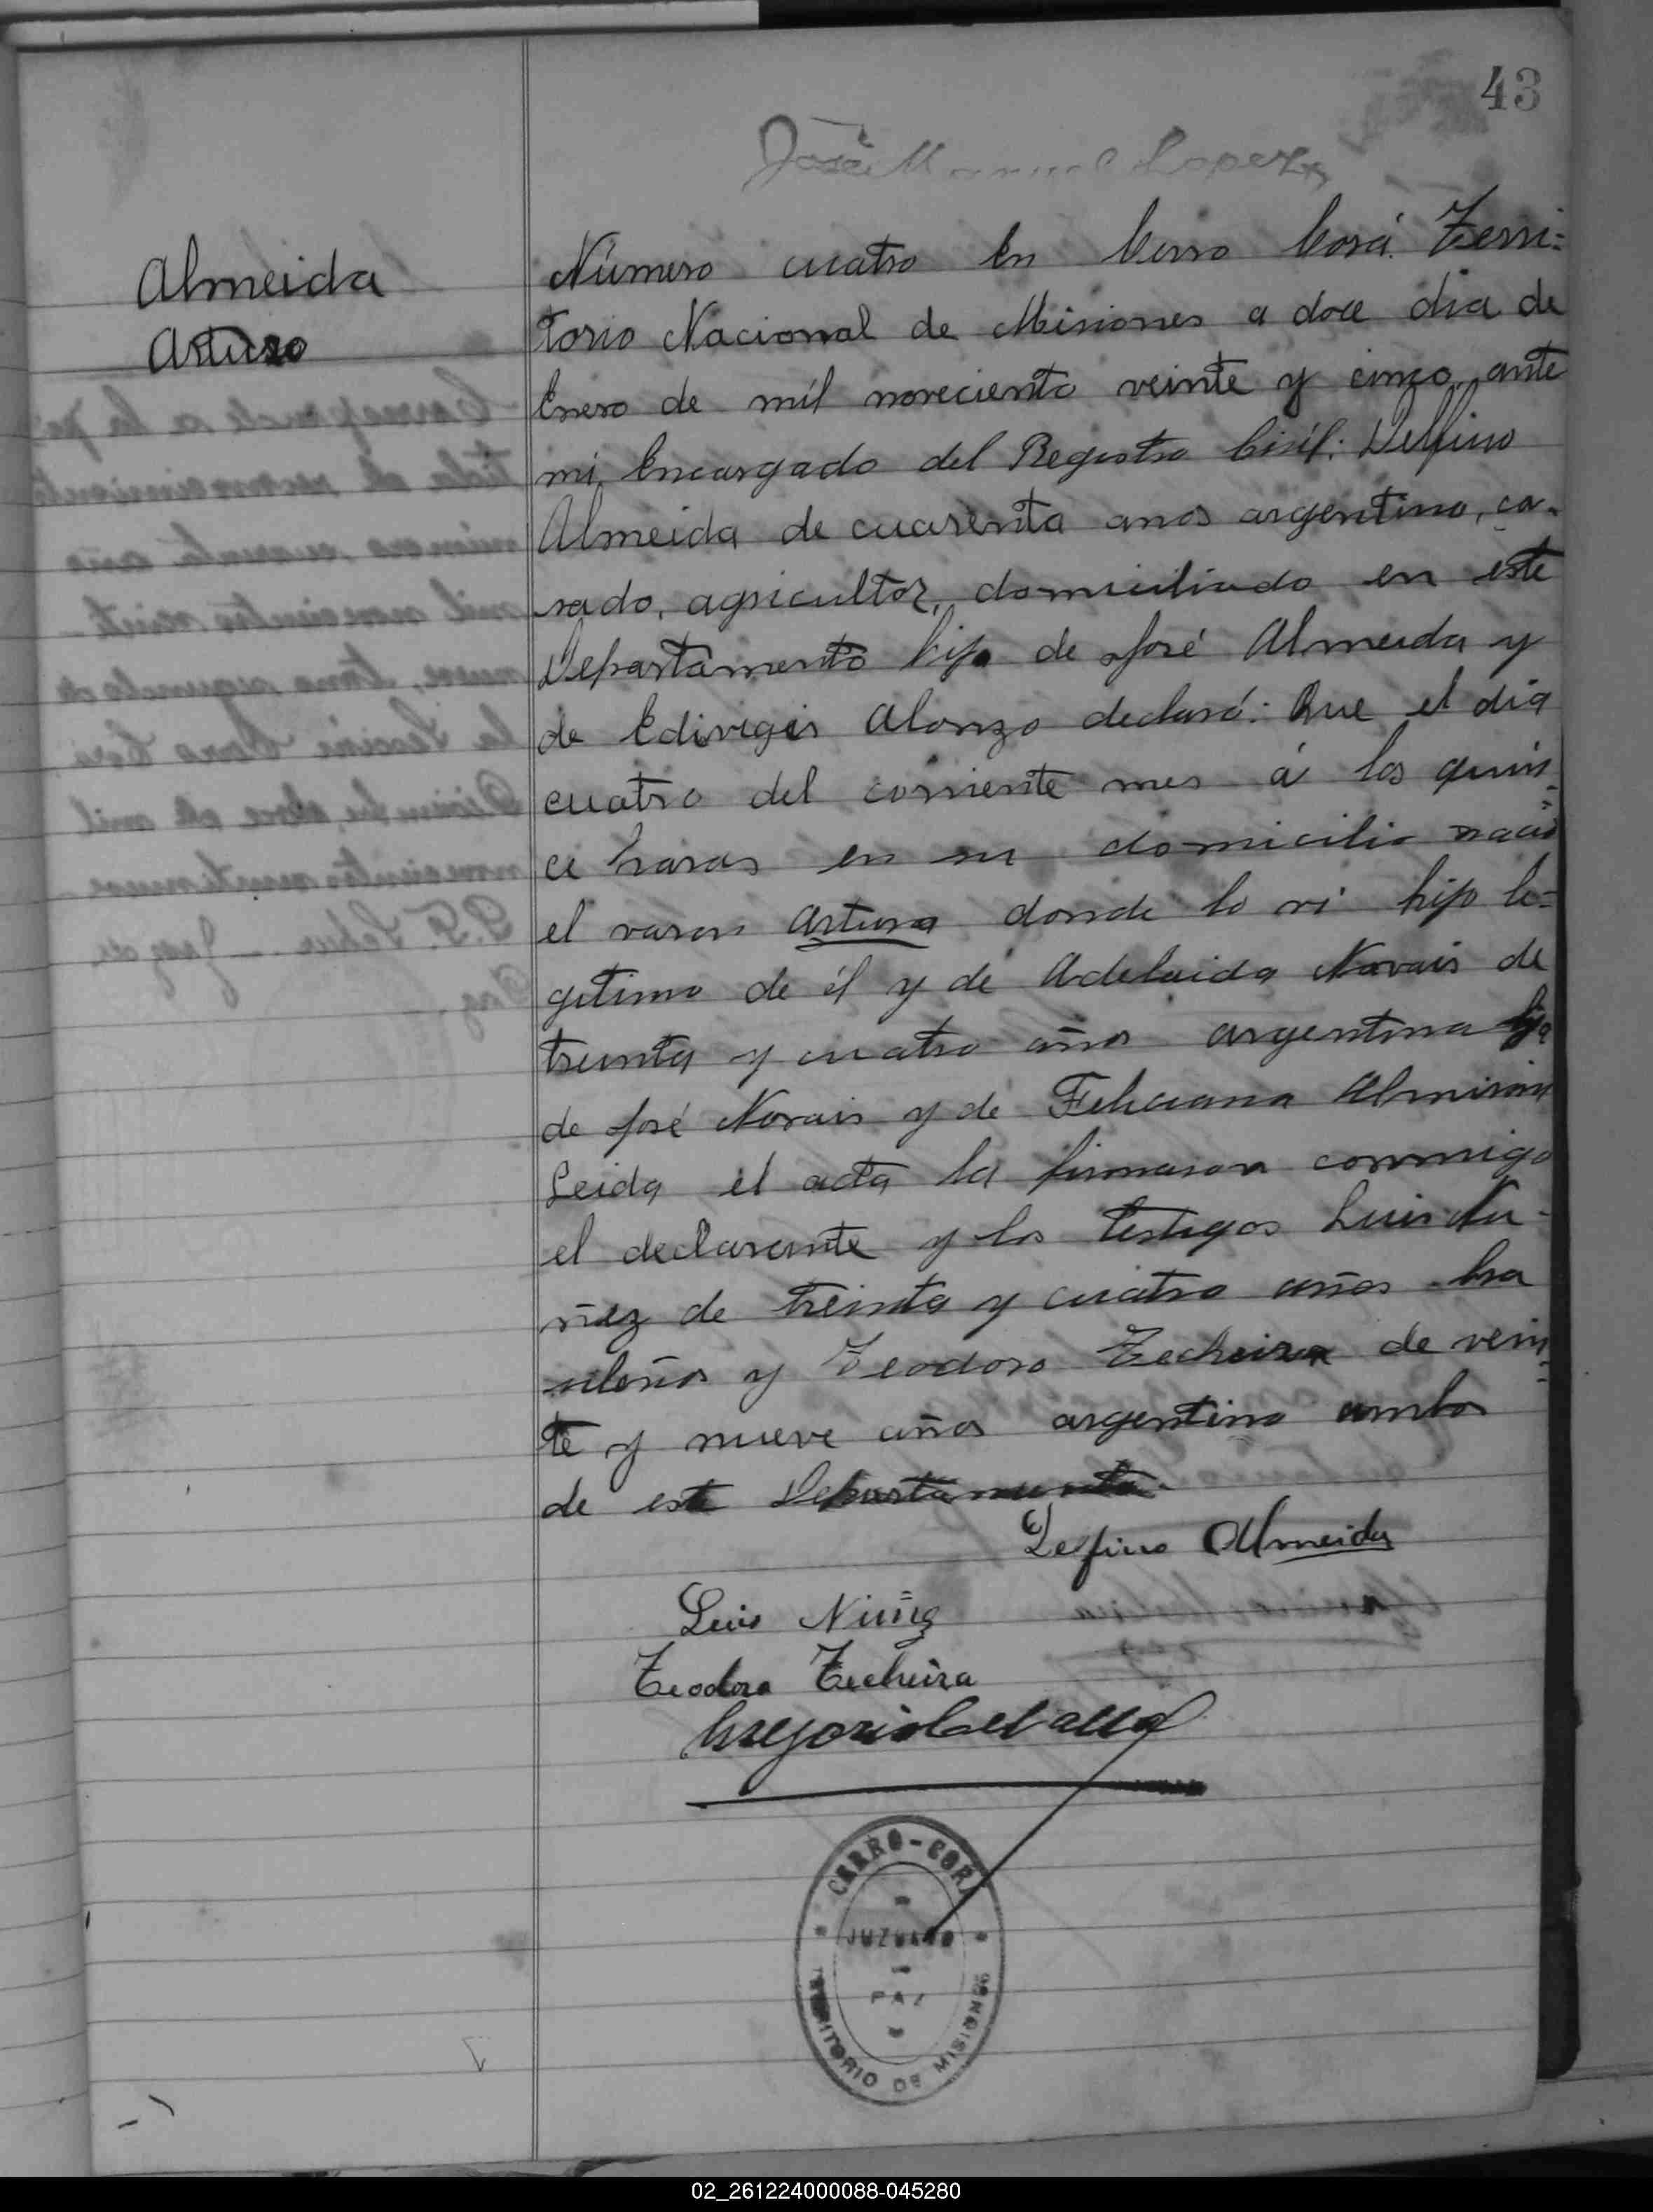 43
José Manuel Lopez
Almeida
Arturo
Número cuatro En Cerro Corá. Terri=
torio Nacional de Misiones a doce dia de
Enero de mil noveciento veinte y cinco ante
mi, Encargado del Registro Civil: Delfino
Almeida de cuarenta anos argentino, ca-
sado, agricultor, domiciliado en este
Departamento hijo de José Almeida y
de Edivigis Alonzo declaró: Que el día
cuatro del corriente mes á las quin=
ce horas en su domicilio nació
el varon Arturo donde lo vi hijo le=
gitimo de él y de Adelaida Novais de
treinta y cuatro años argentina hija
de José Novais y de Feliciana
Leida el acta la firmaron conmigo
el declarante y los testigos Luis Nu-
ñez de treinta y cuatro años bra
sileños y Teodoro Techeira de vein=
te y nueve años argentino ambos
de este Departamento.
Delfino Almeida
Luis Nuñez
Teodoro Techeira
Gregorio
CERRO-CORÁ
JUZGADO
PAZ
TERRITORIO DE MISIONES
02_261224000088-045280